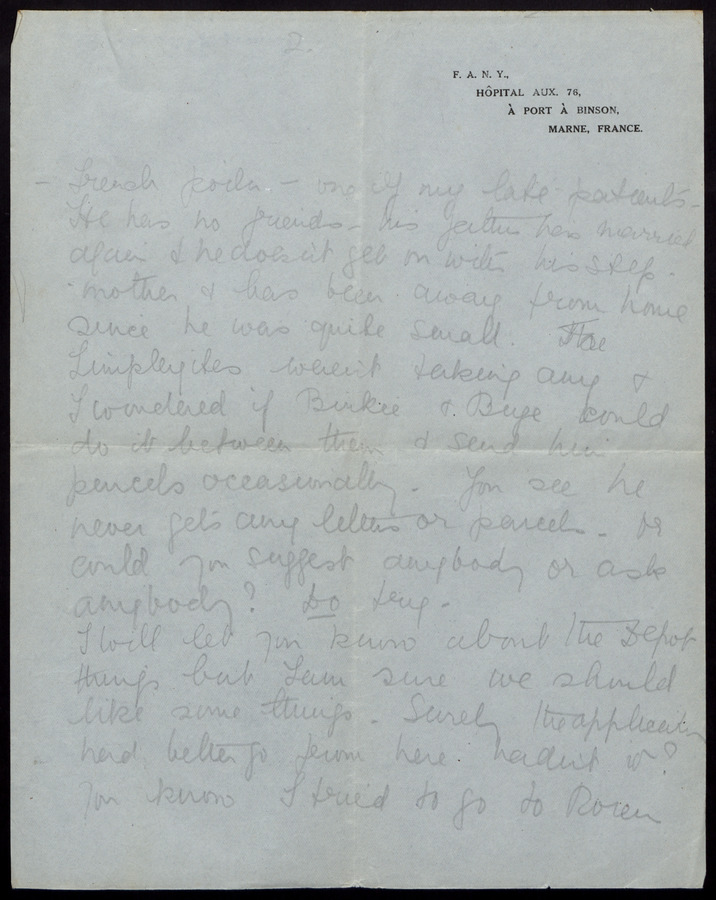 2.
F. A. N. Y.,
HÔPITAL AUX. 76,
À PORT À BINSON,
MARNE, FRANCE.
- French poilu - one of my late patients -
He has no friends - his father has married
again & he doesn't get on with his step-
mother & has been away from home
since he was quite small. The
weren't taking any &
I wondered if Birkie & Buge could
do it between them & send him
parcels occasionally. You see he
never gets any letters or parcels. Or
could you suggest anybody or ask
anybody? Do try.
I will let you know about the Depot
things but I am sure we should
like some things. Surely the application
had better go from here hadn't it?
You know I tried to go to Rouen